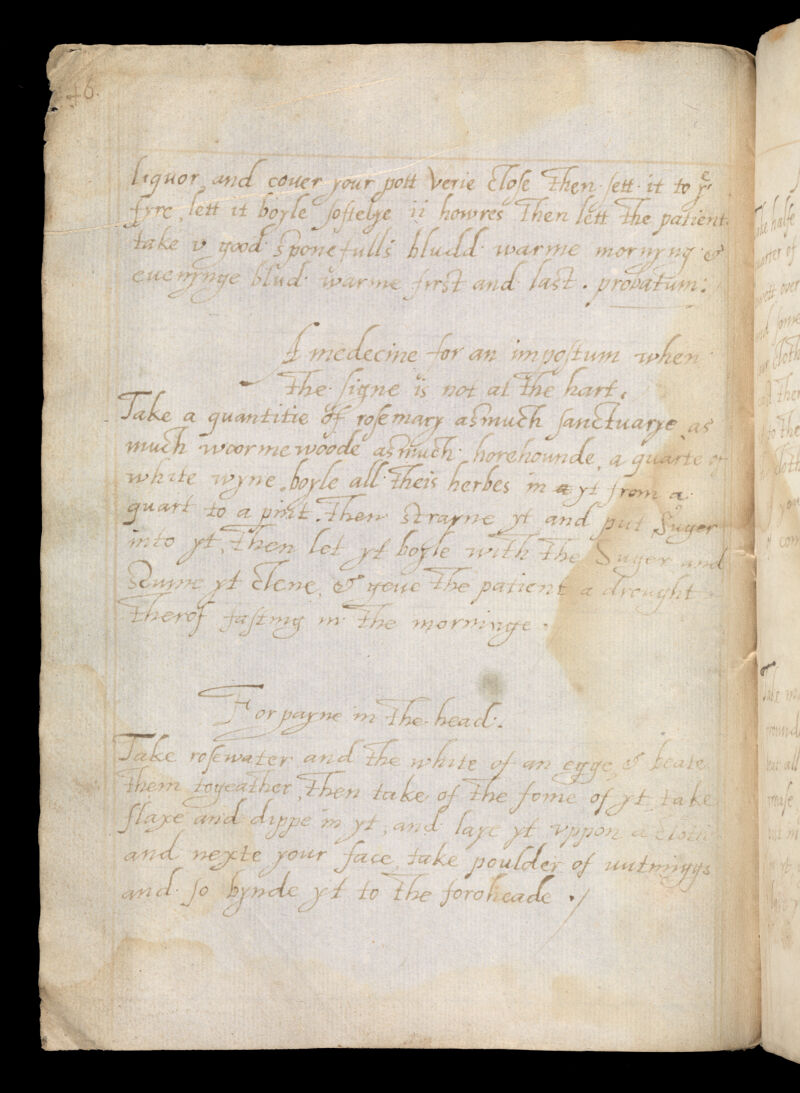 46.
liquor and couer your pott verie close then sett it to yͤ
fyre lett it boyle softelye ii howres Then lett the patient
take v good sponefulls bludd warme mornyng &
euenynge blud warme first and last. probatum:
A medecine for an impostum when
the signe is not at the hart.
Take a quantitie of rosemary asmuch sanctuarye as
much woormewoode asmuch horehounde, a quarte of
white wyne, boyle all theis herbes in yt from a
quart to a pint. Then strayne yt and put Suger
into yt, Then let yt boyle with the Suger and
scume yt clene, & geue the patient a drought
therof fasting in the morninge.
For payne in the head.
Take rosewater and the white of an egge, & beate
them togeather, then take of the fome of yt, take
flaxe and dippe in yt, and laye yt vppon a cloth
and nexte your face, take poulder of nutmiggs
and so bynde yt to the foroheade ./